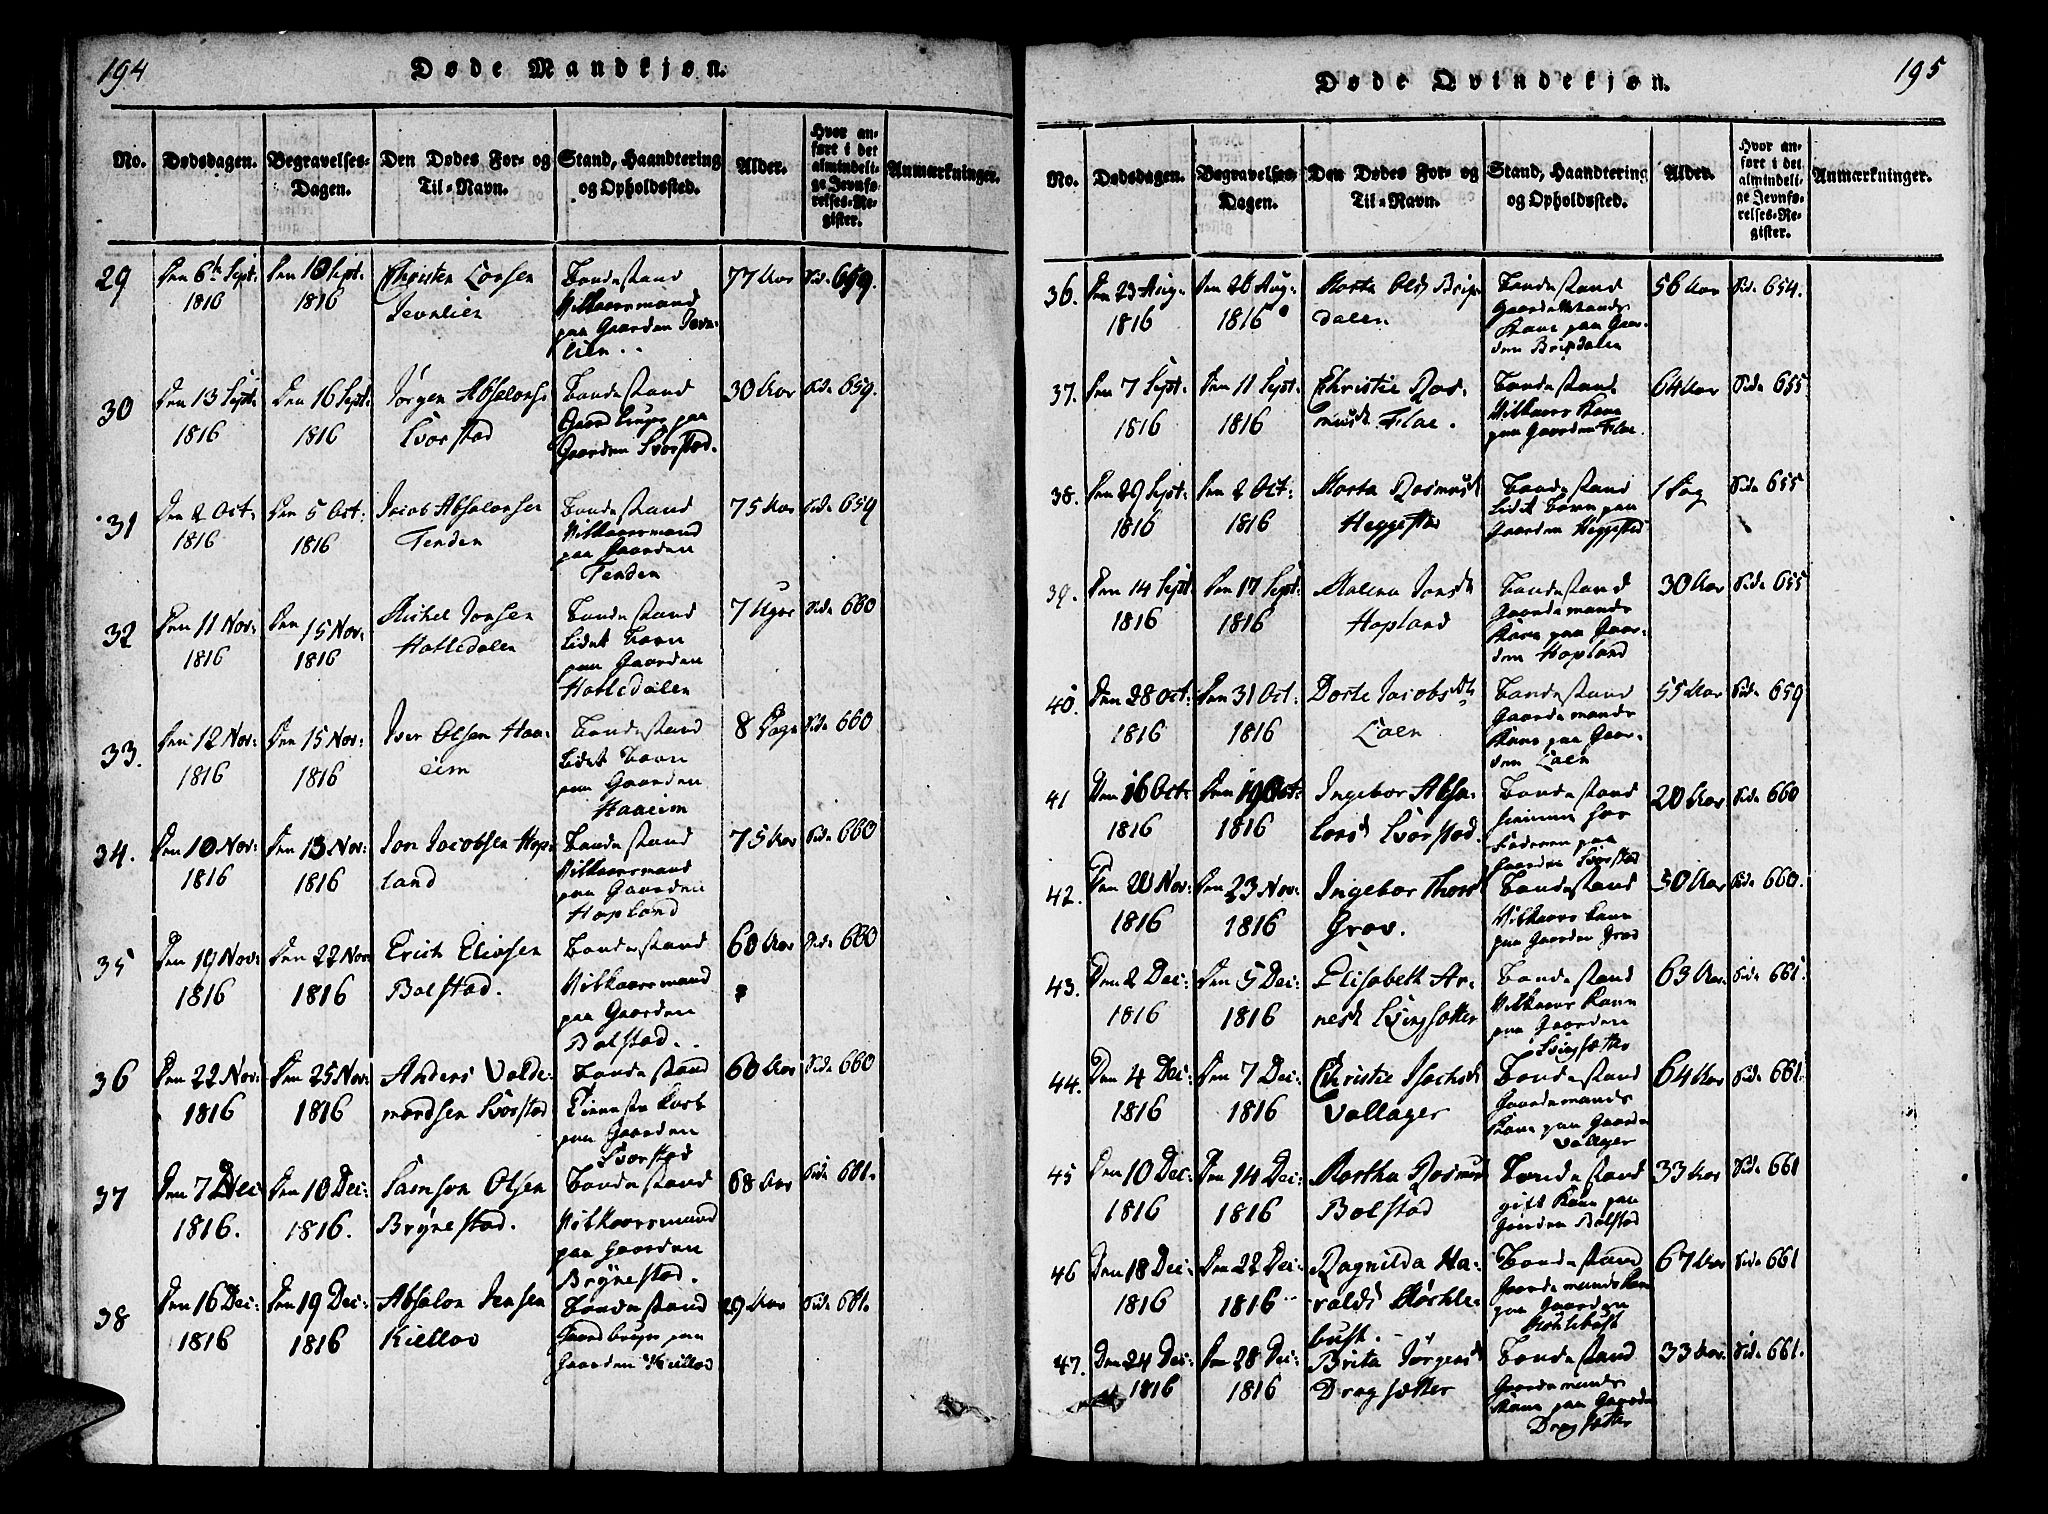 194
Døde Mandkjøn.
No.
Dødsdagen.
Begravelses-
Dagen.
Den Dødes For- og
Til-Navn.
Stand, Haandtering
og Opholdssted.
Alder.
Hvor an-
ført i det
almindeli-
ge Jevnfø-
relses-Re-
gister.
Anmærkninger.
29
Den 6te Sept:
1816
Den 10 Sept:
1816
Christen Larsen
Jevnlien
Bondestand
Vilkaarsmand
paa Gaarden Jevn-
lien
77 Aar
Side 659.
30
Den 13 Sept:
1816
Den 16 Sept:
1816
Jørgen Absalons:
Svorstad
Bondestand
Gaardbruger paa
Gaarden Svorstad.
30 Aar
Side 659.
31
Den 2 Oct:
1816
Den 5 Oct:
1816
Jacob Absalonsen
Tenden
Bondestand
Vilkaarsmand
paa Gaarden
Tenden
75 Aar
Side 659
32
Den 11 Nov:
1816
Den 15 Nov:
1816
Michel Jonsen
Hatledalen
Bondestand
Lidet Barn
paa Gaarden
Hatledalen
7 Uger
Side 660
33.
Den 12 Nov:
1816
Den 15 Nov:
1816
Iver Olsen Haa-
eim
Bondestand
Lidet Barn
paa Gaarden
Haaeim
8 Dage
Side 660
34.
Den 10 Nov:
1816
Den 13 Nov:
1816
Jon Jacobsen Hop-
land
Bondestand
Vilkaarsmand
paa Gaarden
Hopland
75 Aar
Side 660
35
Den 19 Nov:
1816
Den 22 Nov
1816
Erich Elivsen
Bolstad.
Bondestand
Vilkaarsmand
paa Gaarden
Bolstad.
60 Aar
Side 660
36
Den 22 Nov:
1816
Den 25 Nov:
1816
Anders Valde-
mardsen Svorstad
Bondestand
Tieneste Karl
paa Gaarden
Svorstad
60 Aar
Side 660
37
Den 7 Dec
1816.
Den 10 Dec:
1816.
Samson Olsen
Brynestad.
Bondestand
Vilkaarsmand
paa Gaarden
Brynestad.
68 Aar
Side 661.
38
Den 16 Dec:
1816
Den 19 Dec:
1816
Absalon Jensen
Kiellos
Bondestand
Gaardbruger paa
Gaarden Kiellos
29 Aar
Side 661.
195
Døde Qvindekjøn.
No.
Dødsdagen.
Begravelses-
Dagen.
Den Dødes For- og
Til-Navn.
Stand, Haandtering
og Opholdssted.
Alder.
Hvor an-
ført i det
almindeli-
ge Jevnfø-
relses-Re-
gister.
Anmærkninger.
36.
Den 23 Aug:
1816
Den 26 Aug:
1816
Marta Olsd Brix-
dalen
Bondestand
Gaardemands
Kone paa Gaar-
den Brixdalen
56 Aar
Side 654.
37.
Den 7 Sept:
1816
Den 11 Sept:
1816
Christie Ras-
musd Floe.
Bondestand
Vilkaars Kone
paa Gaarden Floe.
64 Aar
Side 655
38.
Den 29 Sept:
1816
Den 2 Oct:
1816
Marta Rasmusd
Heggestad
Bondestand
Lidet Barn paa
Gaarden Heggestad
1 Dag
Side 655
39.
Den 14 Sept
1816
Den 17 Sept:
1816
Malena Jonsd
Hopland
Bondestand
Gaardemands
Kone paa Gaar-
den Hopland
30 Aar
Side 655
40.
Den 28 Oct:
1816
Den 31 Oct:
1816
Dorte Jacobsdt
Loen
Bondestand
Gaardemands
Kone paa Gaar-
den Loen
55 Aar
Side 659
41
Den 16 Oct:
1816
Den 19 Oct:
1816
Ingebor Absa-
lonsd Svorstad.
Bondestand
hiemme hos
Faderen paa
Gaarden Svorstad
20 Aar
Side 660
42.
Den 20 Nov:
1816
Den 23 Nov:
1816
Ingebor Thorsd
Grov.
Bondestand
Vilkaars Kone
paa Gaarden Grov
50 Aar
Side 660.
43.
Den 2 Dec:
1816
Den 5 Dec:
1816
Elisabeth Ar-
nesd Svingsætter
Bondestand
Vilkaars Kone
paa Gaarden
Svingsætter
63 Aar.
Side 661.
44.
Den 4 Dec:
1816
Den 7 Dec:
1816
Christie Isachsd
Vollager
Bondestand
Gaardemands
Kone paa Gaarden
Vollager
64 Aar
Side 661.
45
Den 10 Dec:
1816
Den 14 Dec:
1816
Martha Rasmusd
Bolstad
Bondestand
gift Kone paa
Gaarden Bolstad
33 Aar
Side 661
46
Den 18 Dec:
1816
Den 22 Dec:
1816
Ragnilda Ha-
raldsd Møchle-
bust.
Bondestand
Gaardemands Kone
paa Gaarden
Møchlebust
67 Aar
Side 661
47.
Den 24 Dec:
1816
Den 28 Dec:
1816
Brita Jørgensd
Dragsætter
Bondestand
Gaardemands
Kone paa Gaarden
Dragsætter
33 Aar.
Side 661.